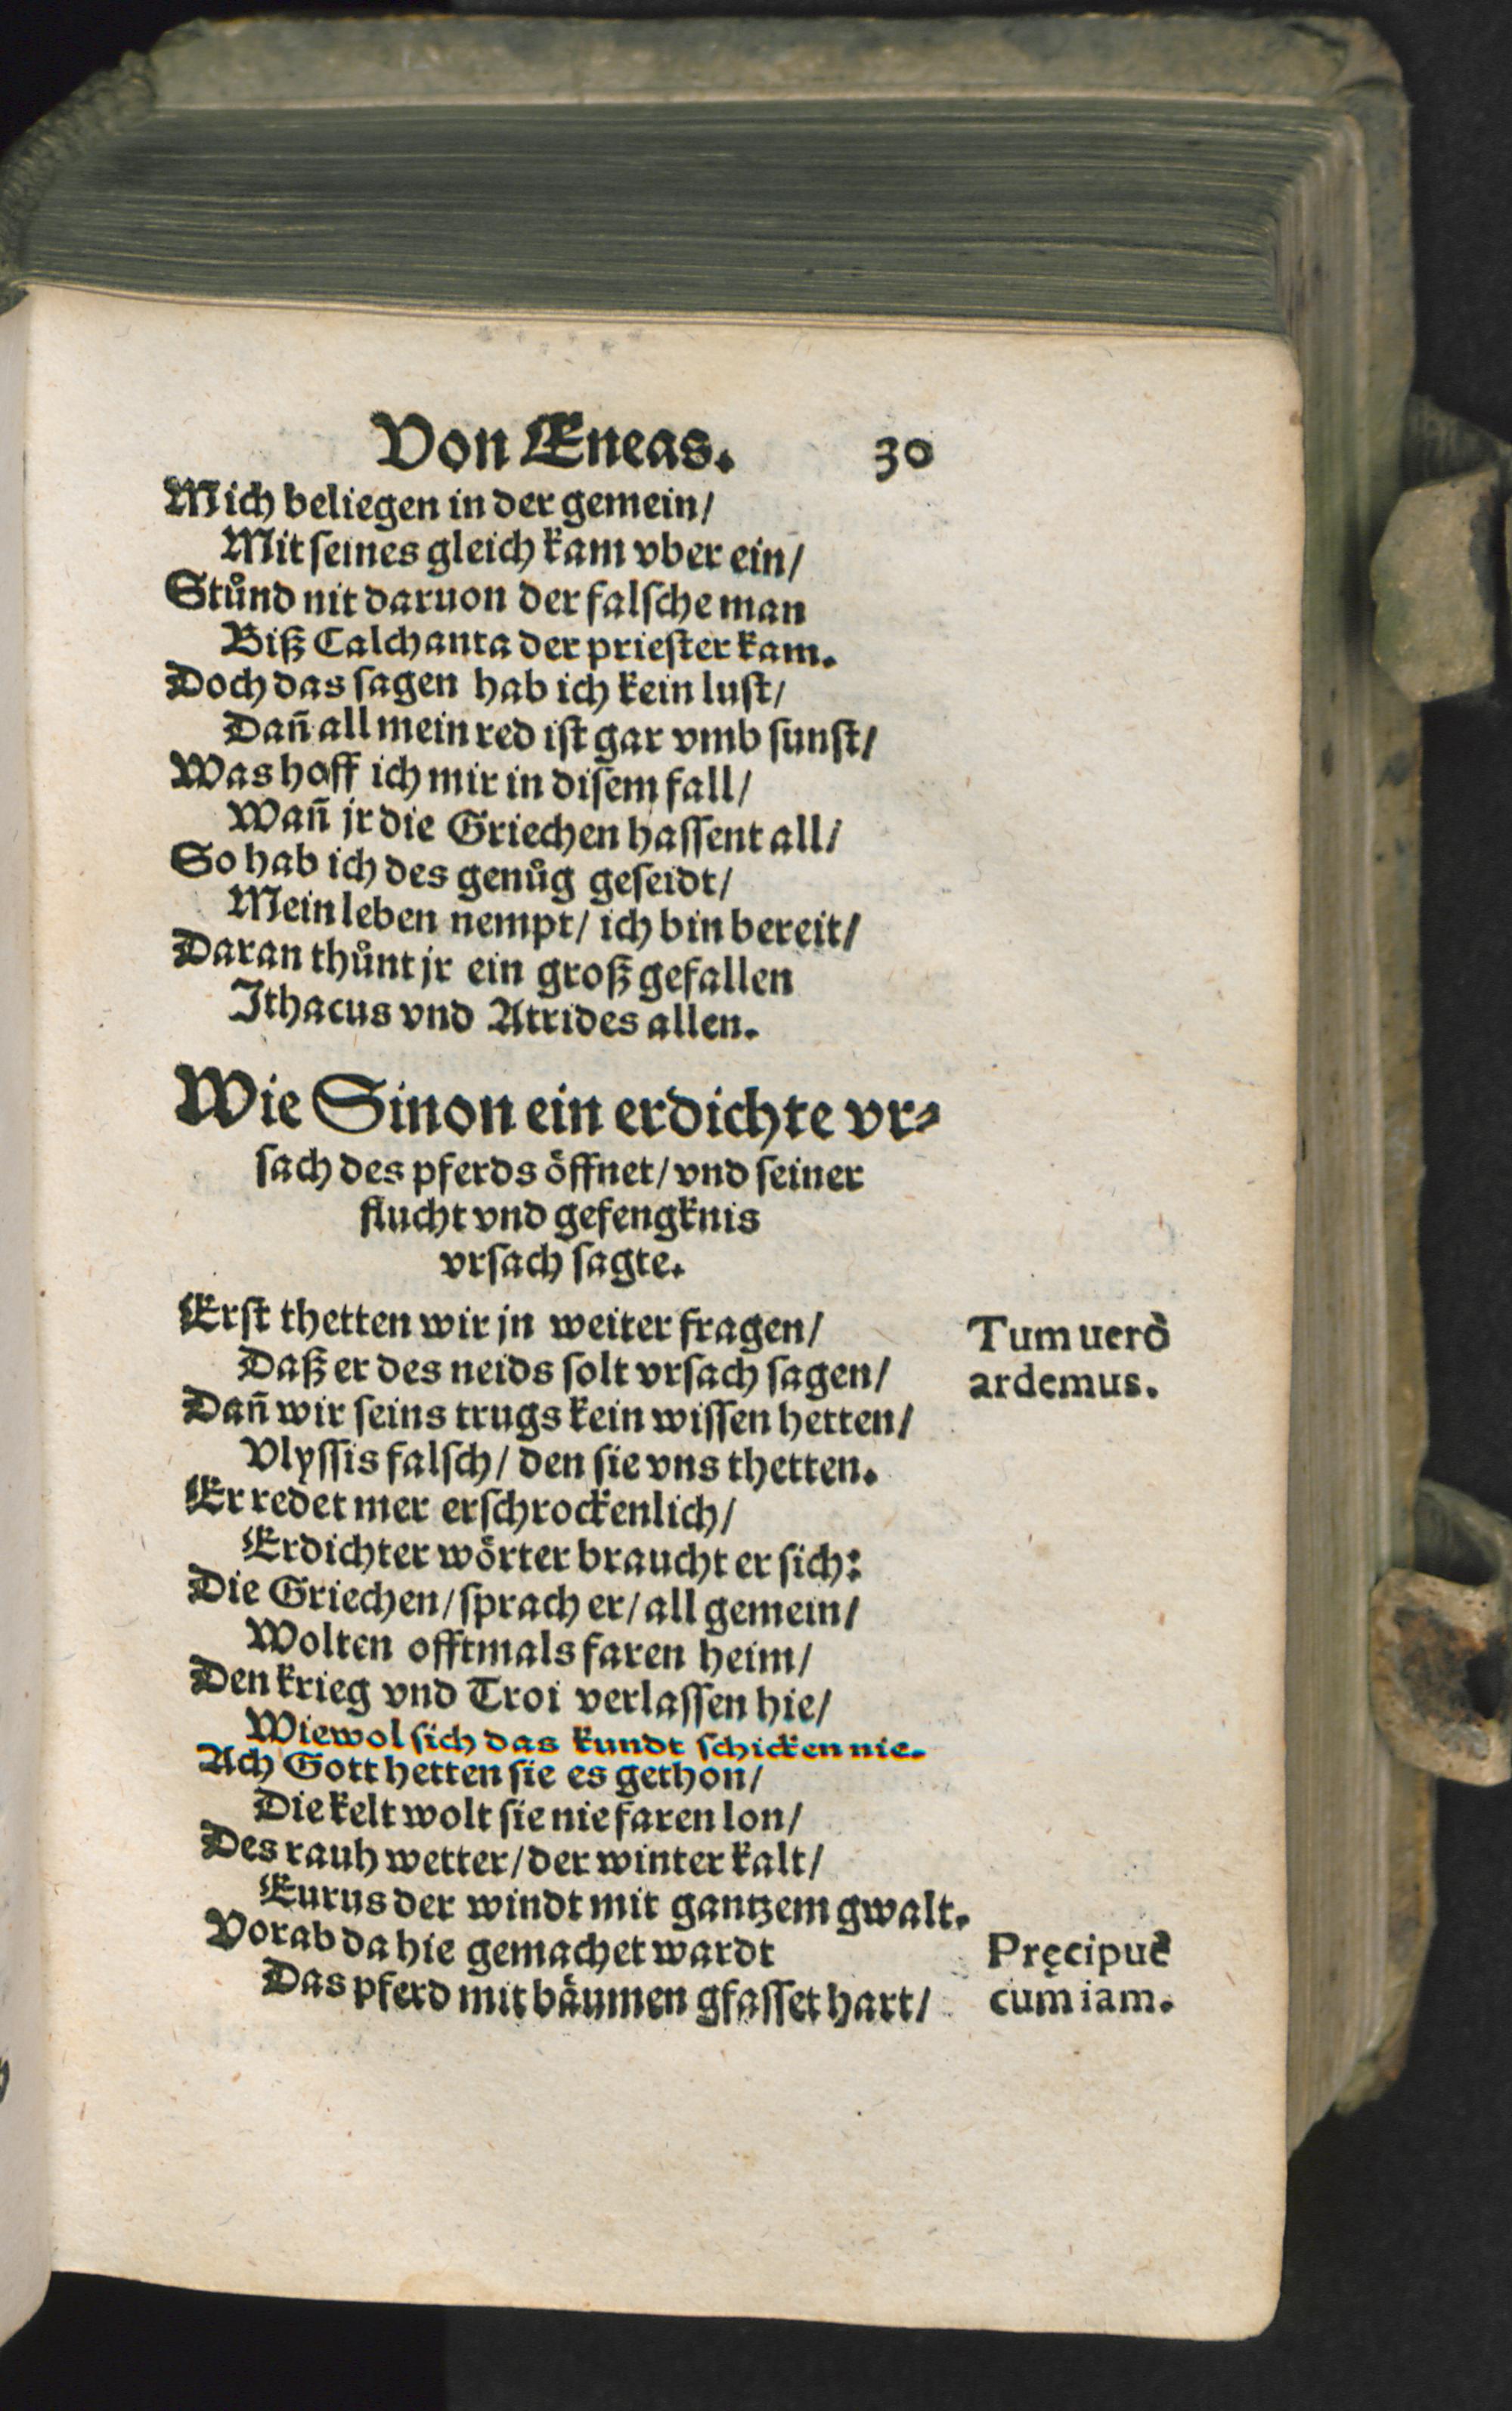 Von Eneas. 30
Mich beliegen in der gemein/
Mit seines gleich kam vber ein/
Stůnd nit daruon der falsche man
Biß Calchanta der priester kam.
Doch das sagen hab ich kein lust/
Dañ all mein red ist gar vmb sunst/
Was hoff ich mir in disem fall/
Wañ jr die Griechen hassent all/
So hab ich des genůg geseidt/
Mein leben nempt/ ich bin bereit/
Daran thůnt jr ein groß gefallen
Ithacus vnd Atrides allen.
Wie Sinon ein erdichte vr⸗
sach des pferds öffnet/ vnd seiner
flucht vnd gefengknis
vrsach sagte.
Erst thetten wir jn weiter fragen/
Tum uerò
Daß er des neids solt vrsach sagen/
ardemus.
Dañ wir seins trugs kein wissen hetten/
Vlyssis falsch/ den sie vns thetten.
Er redet mer erschrockenlich/
Erdichter wörter braucht er sich:
Die Griechen/ sprach er/ all gemein/
Wolten offtmals faren heim/
Den krieg vnd Troi verlassen hie/
Wiewol sich das kundt schicken nie.
Ach Gott hetten sie es gethon/
Die kelt wolt sie nie faren lon/
Des rauh wetter/ der winter kalt/
Eurus der windt mit gantzem gwalt.
Vorab da hie gemachet wardt
Pręcipuè
Das pferd mit bäumen gfasset hart/
cum iam.